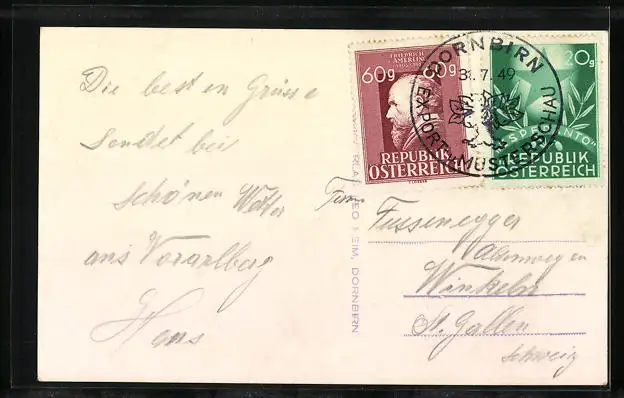 Die besten Grüsse
sendet bei
schönen Wetter
aus Vorarlberg
Hans
FRIEDRICH
AMERLING
60g 60g
REPUBLIK
ÖSTERREICH
DORNBIRN
31.7.49
EXPORT- u. MUSTERSCHAU
20g
"ESPERANTO"
REPUBLIK
ÖSTERREICH
HEIM, DORNBIRN
Fam.
Fussenegger
Winkeln
St. Gallen
Schweiz